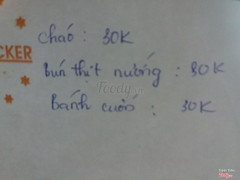 cháo : 30K
CKER
bún thịt nướng : 30K
Foody
Bánh cuốn : 30K